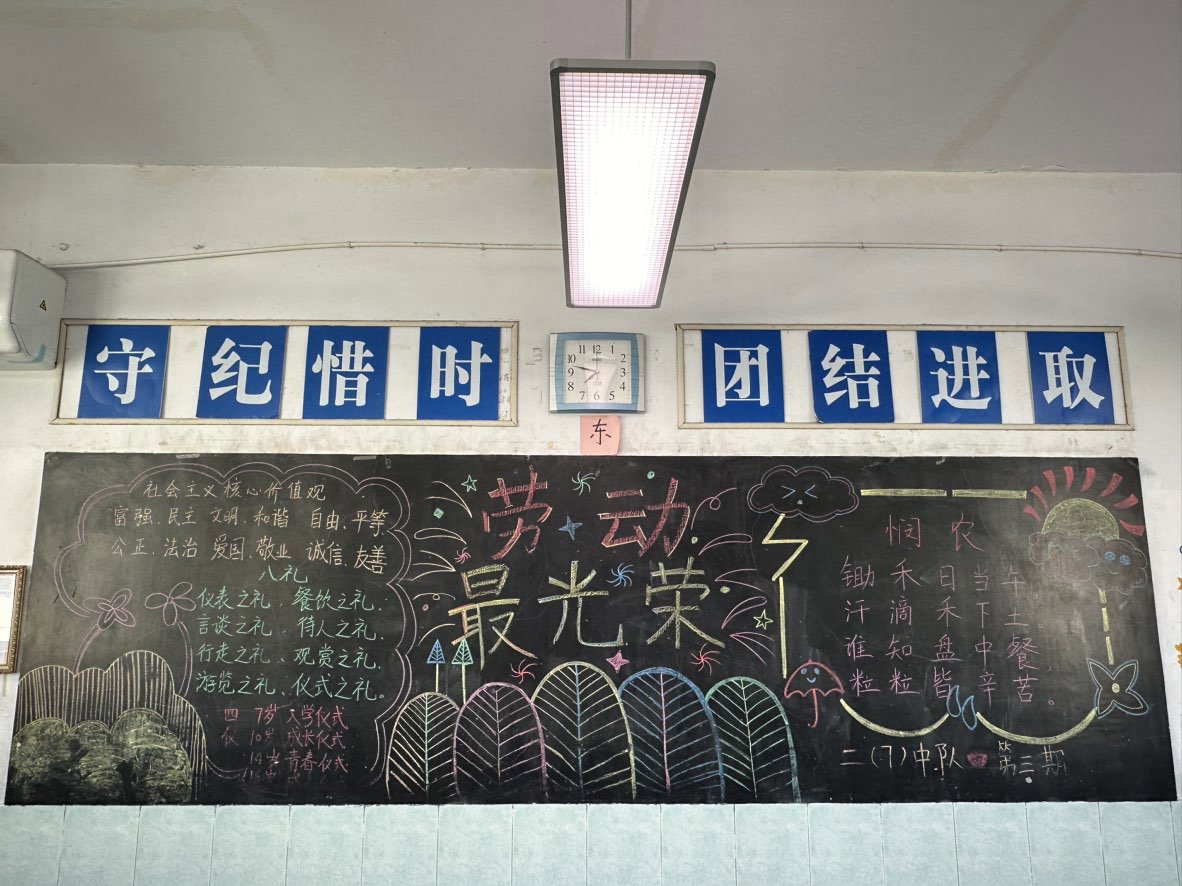 守纪惜时
团结进取
11 12 1
10 2
9 3
8 4
7 6 5
东
社会主义核心价值观
富强、民主、文明、和谐 自由、平等
公正、法治 爱国、敬业 诚信、友善
八礼
仪表之礼、餐饮之礼、
言谈之礼、待人之礼、
行走之礼、观赏之礼、
游览之礼、仪式之礼。
四 7岁 入学仪式
仪 10岁 成长仪式
14岁 青春仪式
劳动
最光荣
悯农
锄禾日当午
汗滴禾下土
谁知盘中餐
粒粒皆辛苦。
二(7)中队
第三期